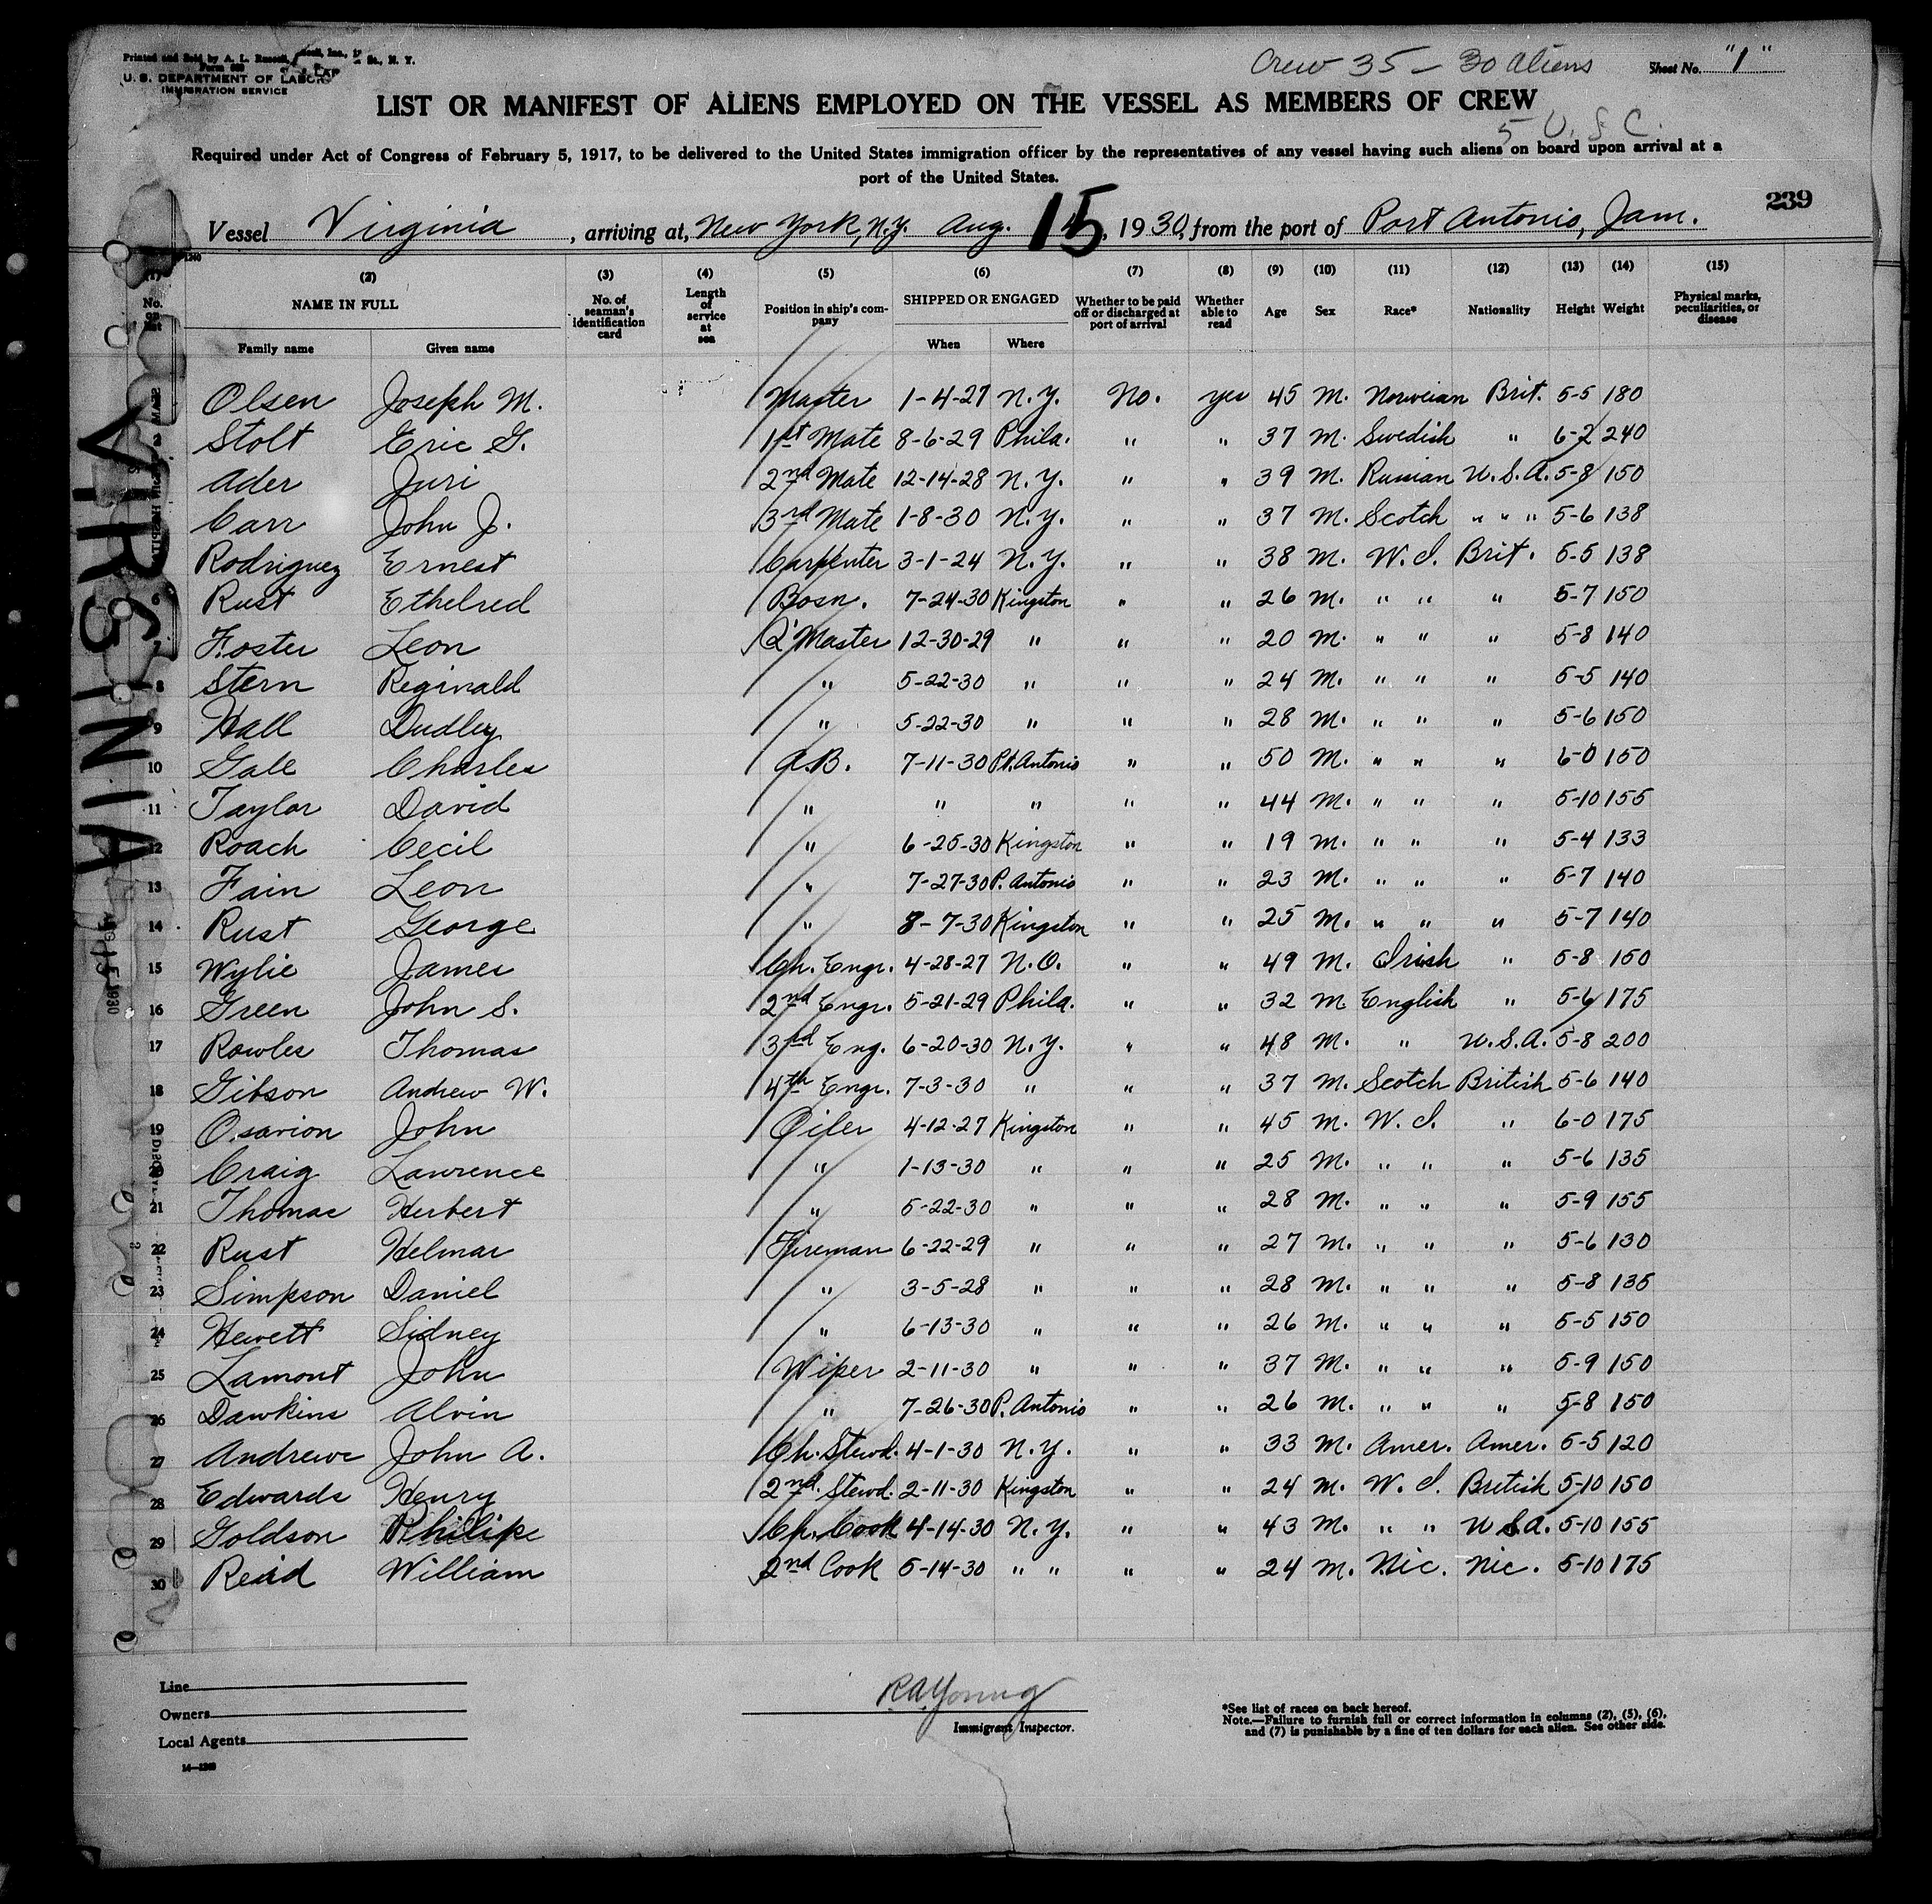 Printed and Sold by A. L. Russell, Inc., St., N. Y.
U. S. DEPARTMENT OF LABOR
IMMIGRATION SERVICE
Crew 35 - 30 aliens
Sheet No. "1"
LIST OR MANIFEST OF ALIENS EMPLOYED ON THE VESSEL AS MEMBERS OF CREW
5 U.S.C.
Required under Act of Congress of February 5, 1917, to be delivered to the United States immigration officer by the representatives of any vessel having such aliens on board upon arrival at a
port of the United States.
239
Vessel Virginia, arriving at, New York, N.Y. Aug. 15, 1930, from the port of Port Antonio, Jam.
(1) (2) (3) (4) (5) (6) (7) (8) (9) (10) (11) (12) (13) (14) (15)
No. on list NAME IN FULL Family name Given name No. of seaman's identification card Length of service at sea Position in ship's company SHIPPED OR ENGAGED When Where Whether to be paid off or discharged at port of arrival Whether able to read Age Sex Race* Nationality Height Weight Physical marks, peculiarities, or disease
Olsen Joseph M. Master 1-4-27 N.Y. No. yes 45 M. Norweian Brit. 5-5 180
2 Stolt Eric G. 1st Mate 8-6-29 Phila. " " 37 M. Swedish " 6-2 240
Ader Juri 2nd Mate 12-14-28 N.Y. " " 39 M. Russian U.S.A. 5-8 150
Carr John J. 3rd Mate 1-8-30 N.Y. " " 37 M. Scotch " " " 5-6 138
Rodriguez Ernest Carpenter 3-1-24 N.Y. " " 38 M. W.I. Brit. 5-5 138
6 Rust Ethelred Bosn. 7-24-30 Kingston " " 26 M. " " " 5-7 150
7 Foster Leon Q'Master 12-30-29 " " " 20 M. " " " 5-8 140
8 Stern Reginald " 5-22-30 " " " 24 M. " " " 5-5 140
9 Hall Dudley " 5-22-30 " " " 28 M. " " " 5-6 150
10 Gale Charles A.B. 7-11-30 Pt. Antonio " " 50 M. " " " 6-0 150
11 Taylor David " " " " " 44 M. " " " 5-10 155
12 Roach Cecil " 6-25-30 Kingston " " 19 M. " " " 5-4 133
13 Fain Leon " 7-27-30 P. Antonio " " 23 M. " " " 5-7 140
14 Rust George " 8-7-30 Kingston " " 25 M. " " " 5-7 140
15 Wylie James Ch. Engr. 4-28-27 N.O. " " 49 M. Irish " 5-8 150
16 Green John S. 2nd Engr. 5-21-29 Phila. " " 32 M English " 5-6 175
17 Rowles Thomas 3rd Eng. 6-20-30 N.Y. " " 48 M. " U.S.A. 5-8 200
18 Gibson Andrew W. 4th Engr. 7-3-30 " " " 37 M. Scotch British 5-6 140
19 Osarion John Oiler 4-12-27 Kingston " " 45 M. W.I. " 6-0 175
20 Craig Lawrence " 1-13-30 " " " 25 M. " " " 5-6 135
21 Thomas Herbert " 5-22-30 " " " 28 M. " " " 5-9 155
22 Rust Helmar Fireman 6-22-29 " " " 27 M. " " " 5-6 130
23 Simpson Daniel " 3-5-28 " " " 28 M. " " " 5-8 135
24 Hewett Sidney " 6-13-30 " " " 26 M. " " " 5-5 150
25 Lamont John Wiper 2-11-30 " " " 37 M. " " " 5-9 150
26 Dawkins Alvin " 7-26-30 P. Antonio " " 26 M. " " " 5-8 150
27 Andrews John A. Ch. Stewd. 4-1-30 N.Y. " " 33 M. Amer. Amer. 5-5 120
28 Edwards Henry 2nd. Stewd. 2-11-30 Kingston " " 24 M. W.I. British 5-10 150
29 Goldson Philip Ch. Cook 4-14-30 N.Y. " " 43 M. " " U.S.A. 5-10 155
30 Reid William 2nd Cook 5-14-30 " " " " 24 M. Nic. Nic. 5-10 175
VIRGINIA
Line
Owners
Local Agents
14-1240
R.A. Young
Immigrant Inspector.
*See list of races on back hereof.
Note.—Failure to furnish full or correct information in columns (2), (5), (6),
and (7) is punishable by a fine of ten dollars for each alien. See other side.